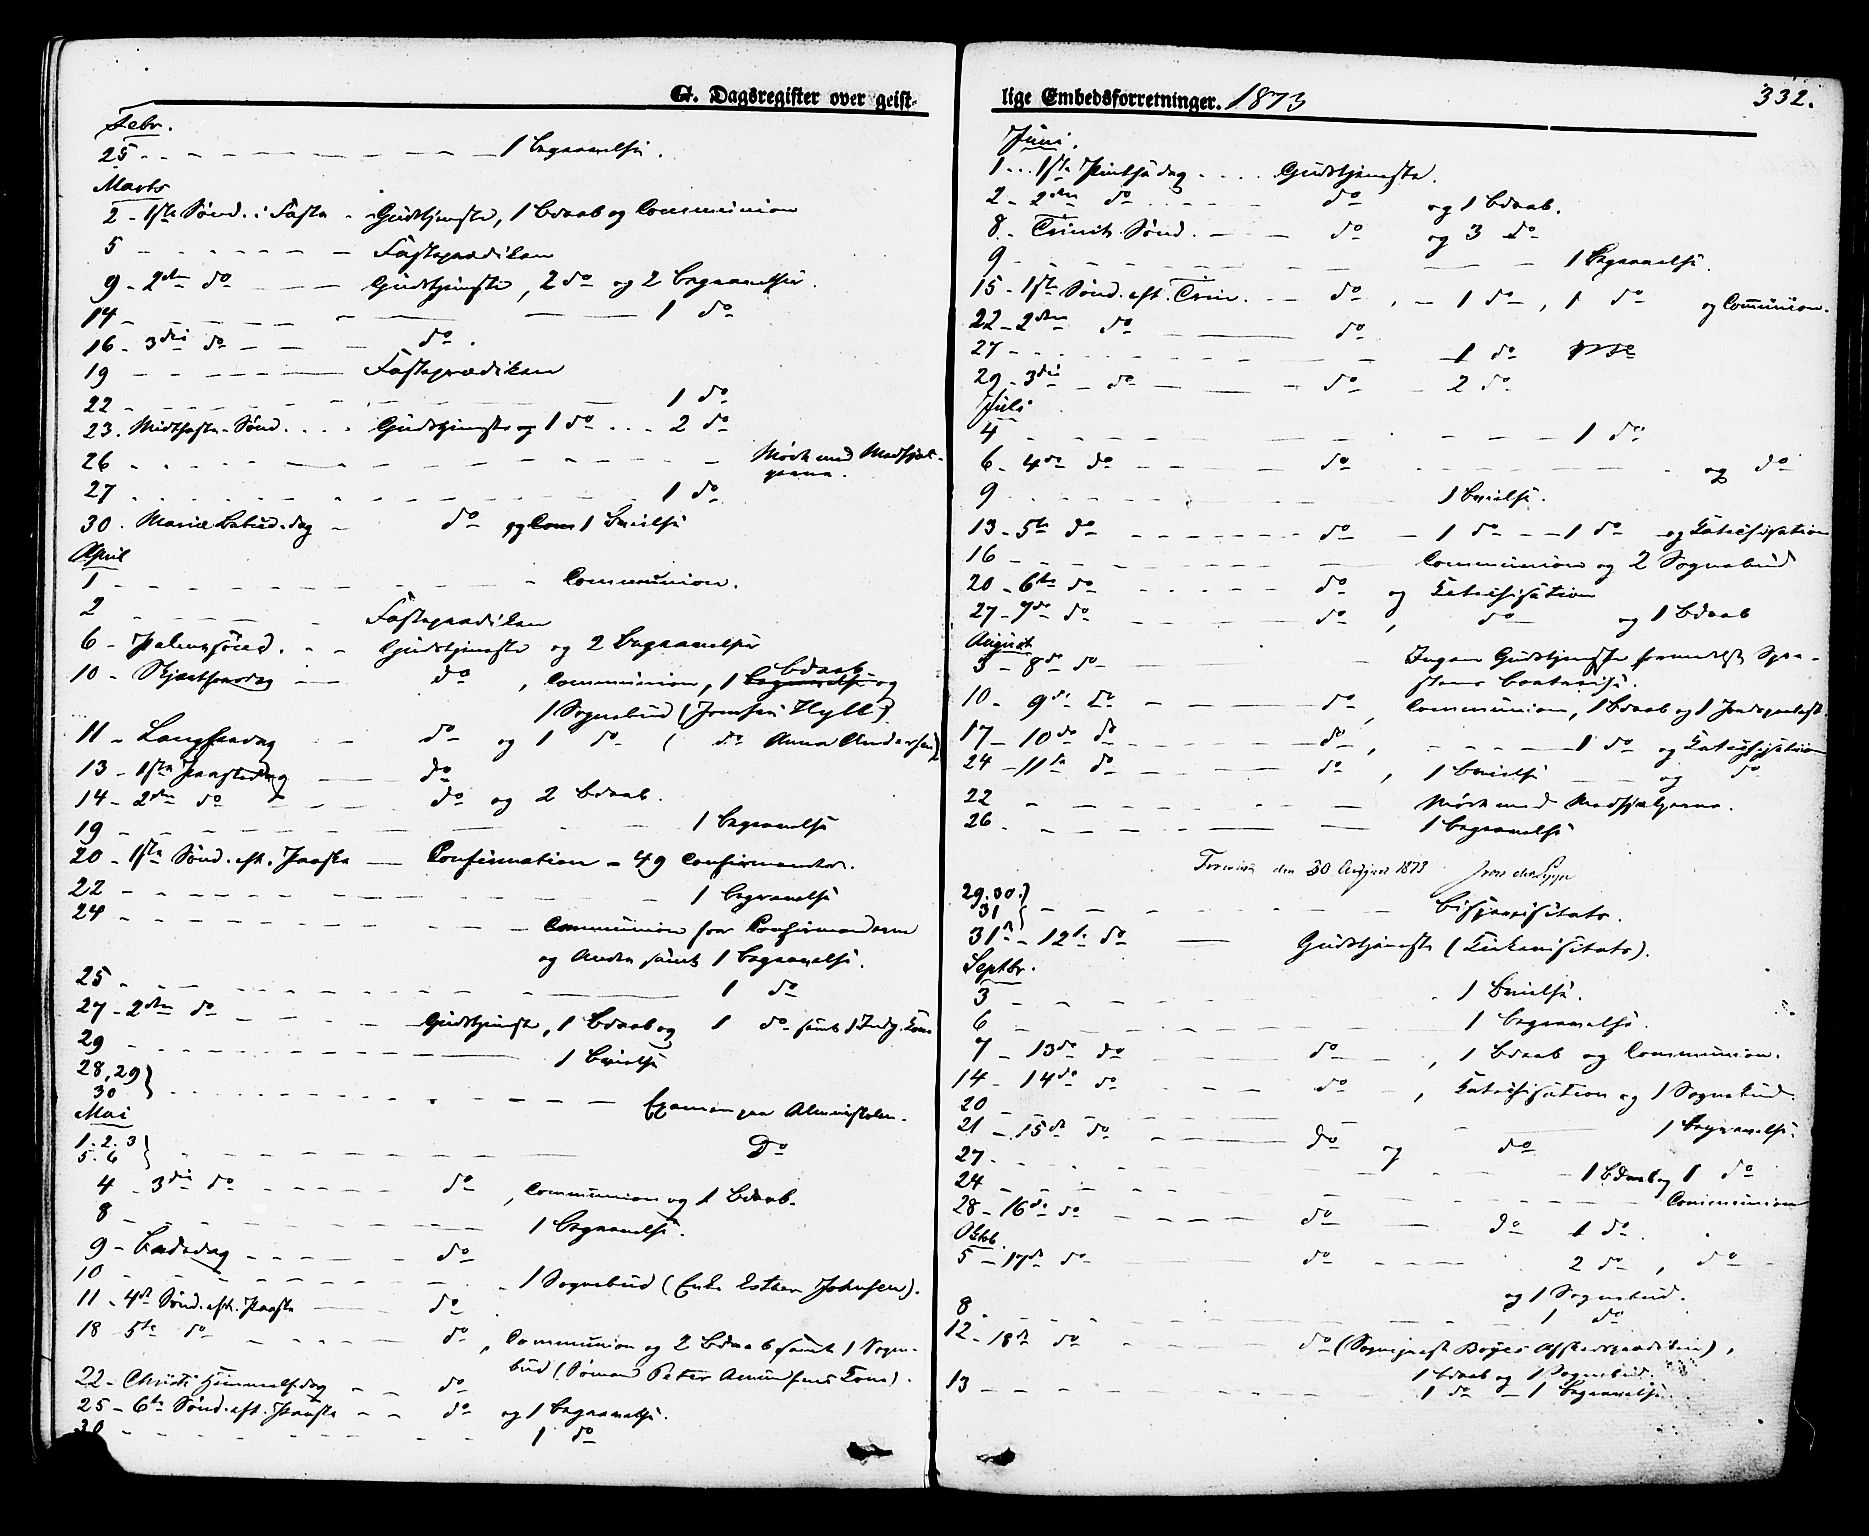 G. Dagsregister over geist-
Febr.
25 - - - 1 Begravelse.
Marts
2 - 1ste Sønd. i Faste - Gudstjeneste, 1 Bdaab og Communion
5 - - - Fasteprædiken
9 - 2den do - - Gudstjeneste, 2 do og 2 Begravelser.
14 - - - 1 do
16 - 3die do - - do.
19 - - - Fasteprædiken
22 - - - 1 do
23. Midtfaste-Sønd. . . . Gudstjeneste og 1 do . . . 2 do
26 - - - Møde med Medhjæl-
perne.
27 - - - 1 do
30. Mariæ Bebud.dag - do og Com 1 Vielse
April
1 - - - Communion.
2 - - - Fasteprædiken
6 - Palmesønd. - - Gudstjeneste og 2 Begravelser
10 - Skjærthorsdag - do, Communion, 1 Begravelse Bdaab og
1 Sognebud (Jomfru Hyll).
11 - Langfredag - do og 1 do ( do Anna Andersen)
13 - 1ste Paaskedag - do
14 - 2den do - - do og 2 Bdaab.
19 - - - 1 Begravelse
20 - 1ste Sønd. eft. Paaske - Confirmation - 49 Confirmanter.
22 - - - 1 Begravelse
24 - - - Communion for Confirmanderne
og Andre samt 1 Begravelse.
25 - - - 1 do
27 - 2den do - - - Gudstjeneste, 1 Bdaab og 1 do samt 1 Indg. Kone
29 - - - 1 Vielse
28, 29
30 } - - - Examen paa Almueskolen.
Mai
1. 2. 3
5. 6 } - - - Do
4 - 3die do - - - do, Communion og 1 Bdaab.
8 - - - 1 Begravelse.
9 - Bededag - - - do
10 - - - 1 Sognebud (Enke Esther Johnsen).
11 - 4de Sønd. eft. Paaske - do
18 5te do - - - do, Communion og 2 Bdaab samt 1 Sogne-
bud (Sømand Peter Amundsens Kone).
22 - Christi Himmelfdag - - do
25 - 6te Sønd. eft. Paaske - - do og 1 Begravelse.
30 - - - 1 do
lige Embedsforretninger. 1873
332.
Juni.
1 . . . 1ste Pintsedag . . . . Gudstjeneste.
2 - 2den do - - - do og 1 Bdaab.
8 - Trinit. Sønd. - - do og 3 do
9 - - - 1 Begravelse.
15 - 1ste Sønd. eft. Trin. - - do, - 1 do, 1 do og Communion.
22 - 2den do - - do
27 - - - 1 do
29 - 3die - do - - do - 2 do
Juli
4 - - - 1 do
6 - 4de do - - do - - - og do
9 - - - 1 Vielse.
13 - 5te do - - - do - 1 do - - 1 do og Katechisation
16 - - - Communion og 2 Sognebud
20 - 6te do - - - do og Katechisation
27 - 7de do - - - do, do og 1 Bdaab
August
3 - 8de do - - - Ingen Gudstjeneste formedelst Præ-
stens
10 - 9de do - - do, Communion, 1 Bdaab og 1 Jordspaakast.
17 - 10de do - - - do, - - - 1 do og Katechisation
24 - 11te do - - - do, 1 Vielse - - og do
22 - - - Møde med Medhjælperne.
26 - - - 1 Begravelse
den 30 August 1873
29. 30.
31 } - - - Bispevisitats.
31te - 12te do - Gudstjeneste (Kirkevisitats).
Septbr.
3 - - - 1 Vielse.
6 - - - 1 Begravelse.
7 - 13de do - - - do - - , 1 Bdaab og Communion.
14 - 14de do - - do - , Katechisation og 1 Sognebud.
20 - - - 1 Begravelse.
21 - 15de do - - - do og do
27 - - - 1 Bdaab og 1 do
24 - - - Communion
28 - 16de do - - - do - do 1 do.
Oktb.
5 - 17de do - - - do - - - 2 do, do -
og 1 Sognebud.
8 - - - 1 do
12 - 18de do - - - do (Sognepræst Boyes Afskedsprædiken),
1 Bdaab og 1 Sognebud.
13 - - - 1 do - 1 Begravelse.